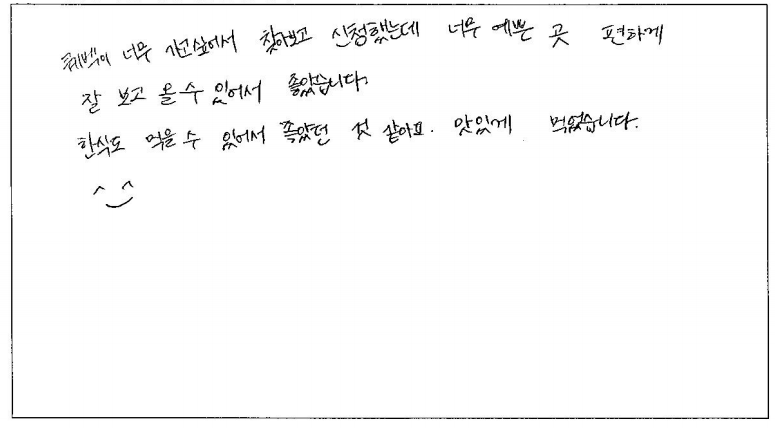 퀘벡이 너무 가고싶어서 찾아보고 신청했는데 너무 예쁜 곳 편하게
잘 보고 올 수 있어서 좋았습니다.
한식도 먹을 수 있어서 좋았던 것 같아요. 맛있게 먹었습니다.
^‿^